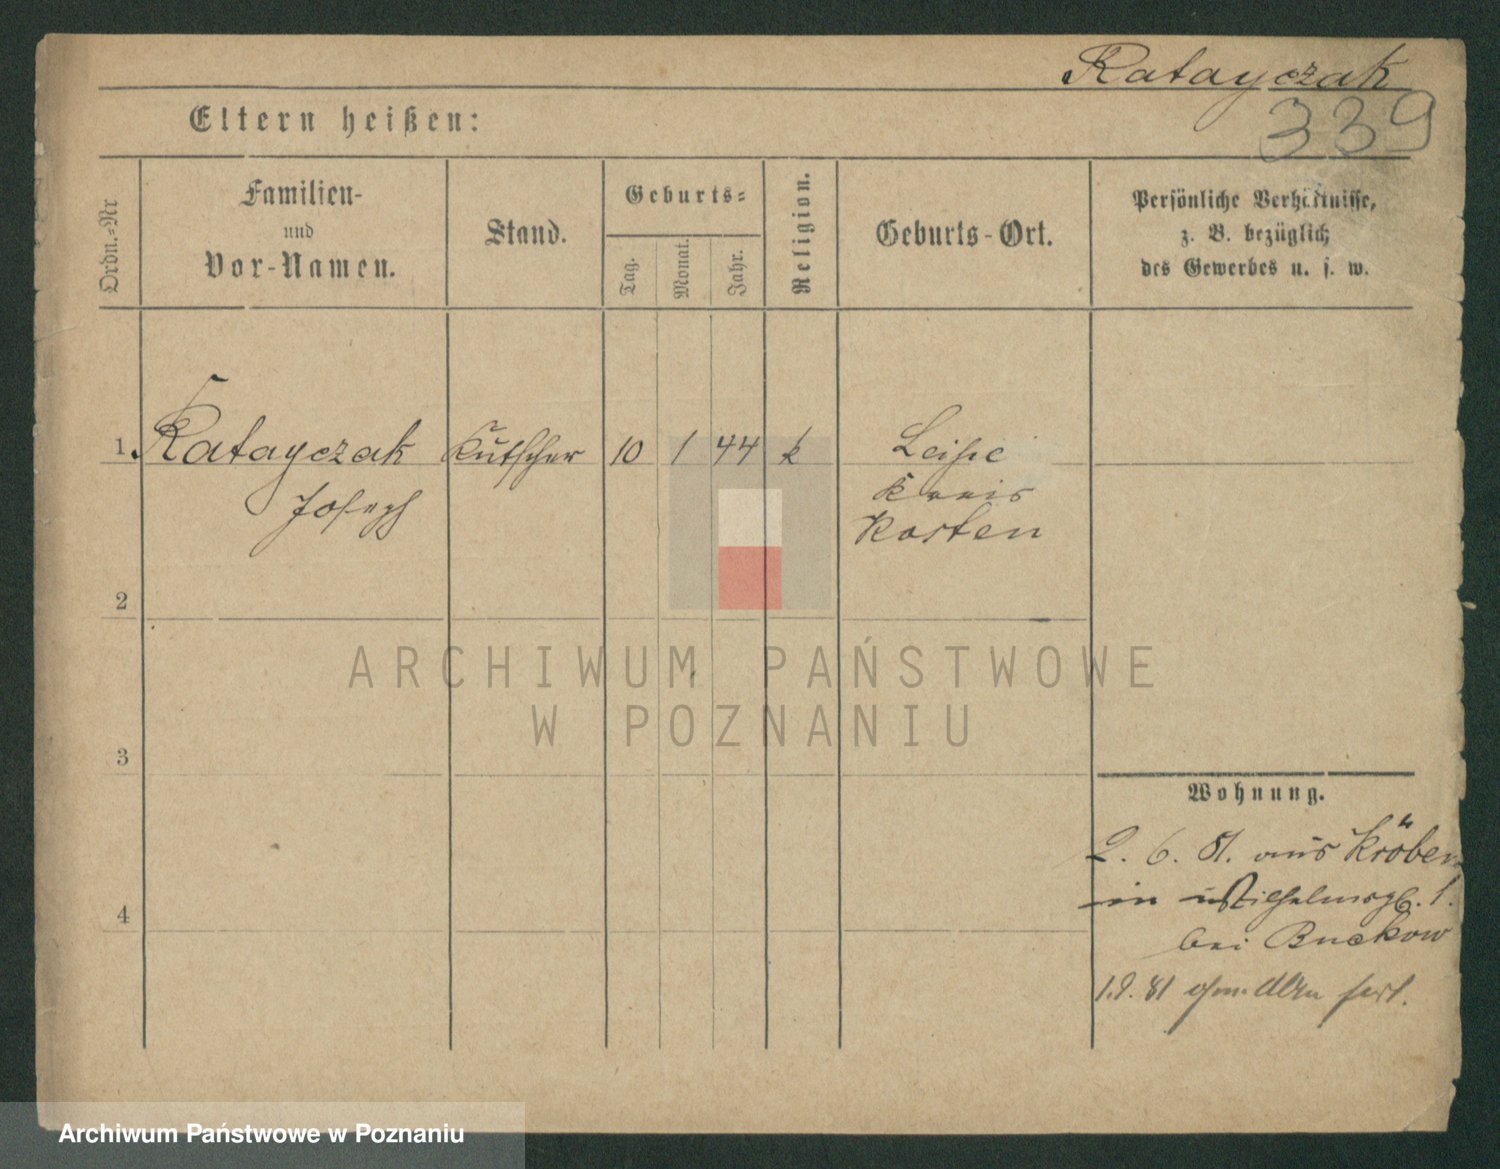 Ratayczak
339
Eltern heißen:
Ordn.-Nr
Familien-
und
Vor-Namen.
Stand.
Geburts-
Tag.
Monat.
Jahr.
Religion.
Geburts-Ort.
Persönliche Verhältnisse,
z. B. bezüglich
des Gewerbes u. s. w.
1. Ratayczak Kutscher 10 1 44 k Leipe
Joseph Kreis
Kosten
2
3
4
Wohnung.
2. 6. 81. aus Kröben
in Wilhelmspl. 1.
bei Buckow
1.9.81
ARCHIWUM PAŃSTWOWE
W POZNANIU
Archiwum Państwowe w Poznaniu